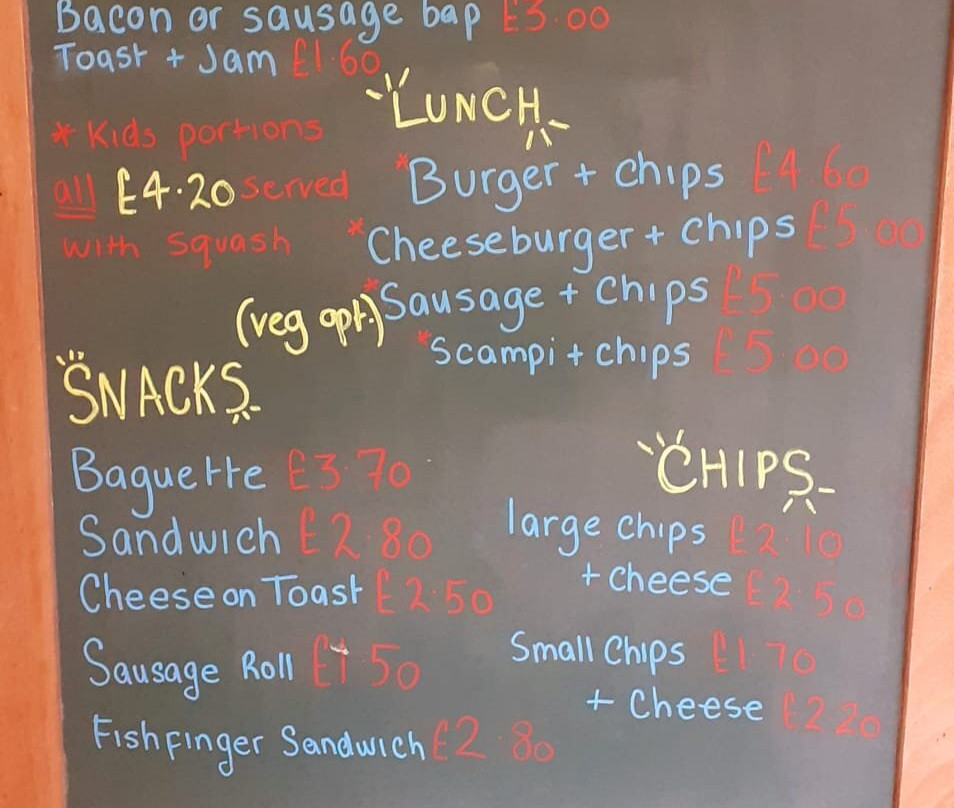 Bacon or sausage bap £3.00
Toast + Jam £1.60
LUNCH
* Kids portions
all £4.20 served
with squash
*Burger + chips £4.60
*Cheeseburger + chips £5.00
(veg opt.) *Sausage + chips £5.00
*Scampi + chips £5.00
SNACKS
Baguette £3.70
Sandwich £2.80
Cheese on Toast £2.50
Sausage Roll £1.50
Fishfinger Sandwich £2.80
CHIPS
large chips £2.10
+ cheese £2.50
Small Chips £1.70
+ Cheese £2.20